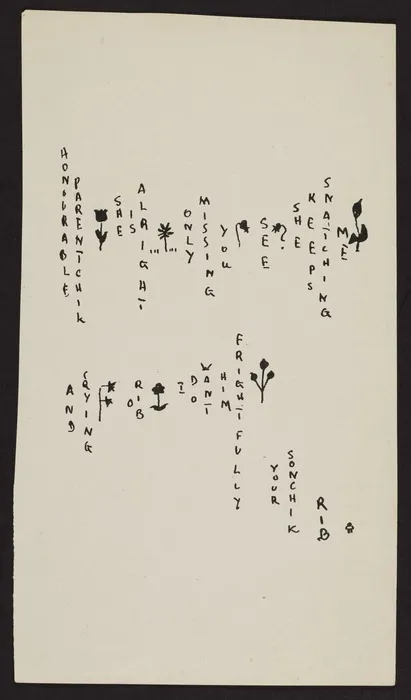 HONOURABLE
PARENTCHIK
SHE
IS
ALRIGHT
ONLY
MISSING
YOU
SEE
?
SHE
KEEPS
SNATCHING
ME
AND
CRYING
O
RIB
I
DO
WANT
HIM
FRIGHTFULLY
YOUR
SONCHIK
RIB